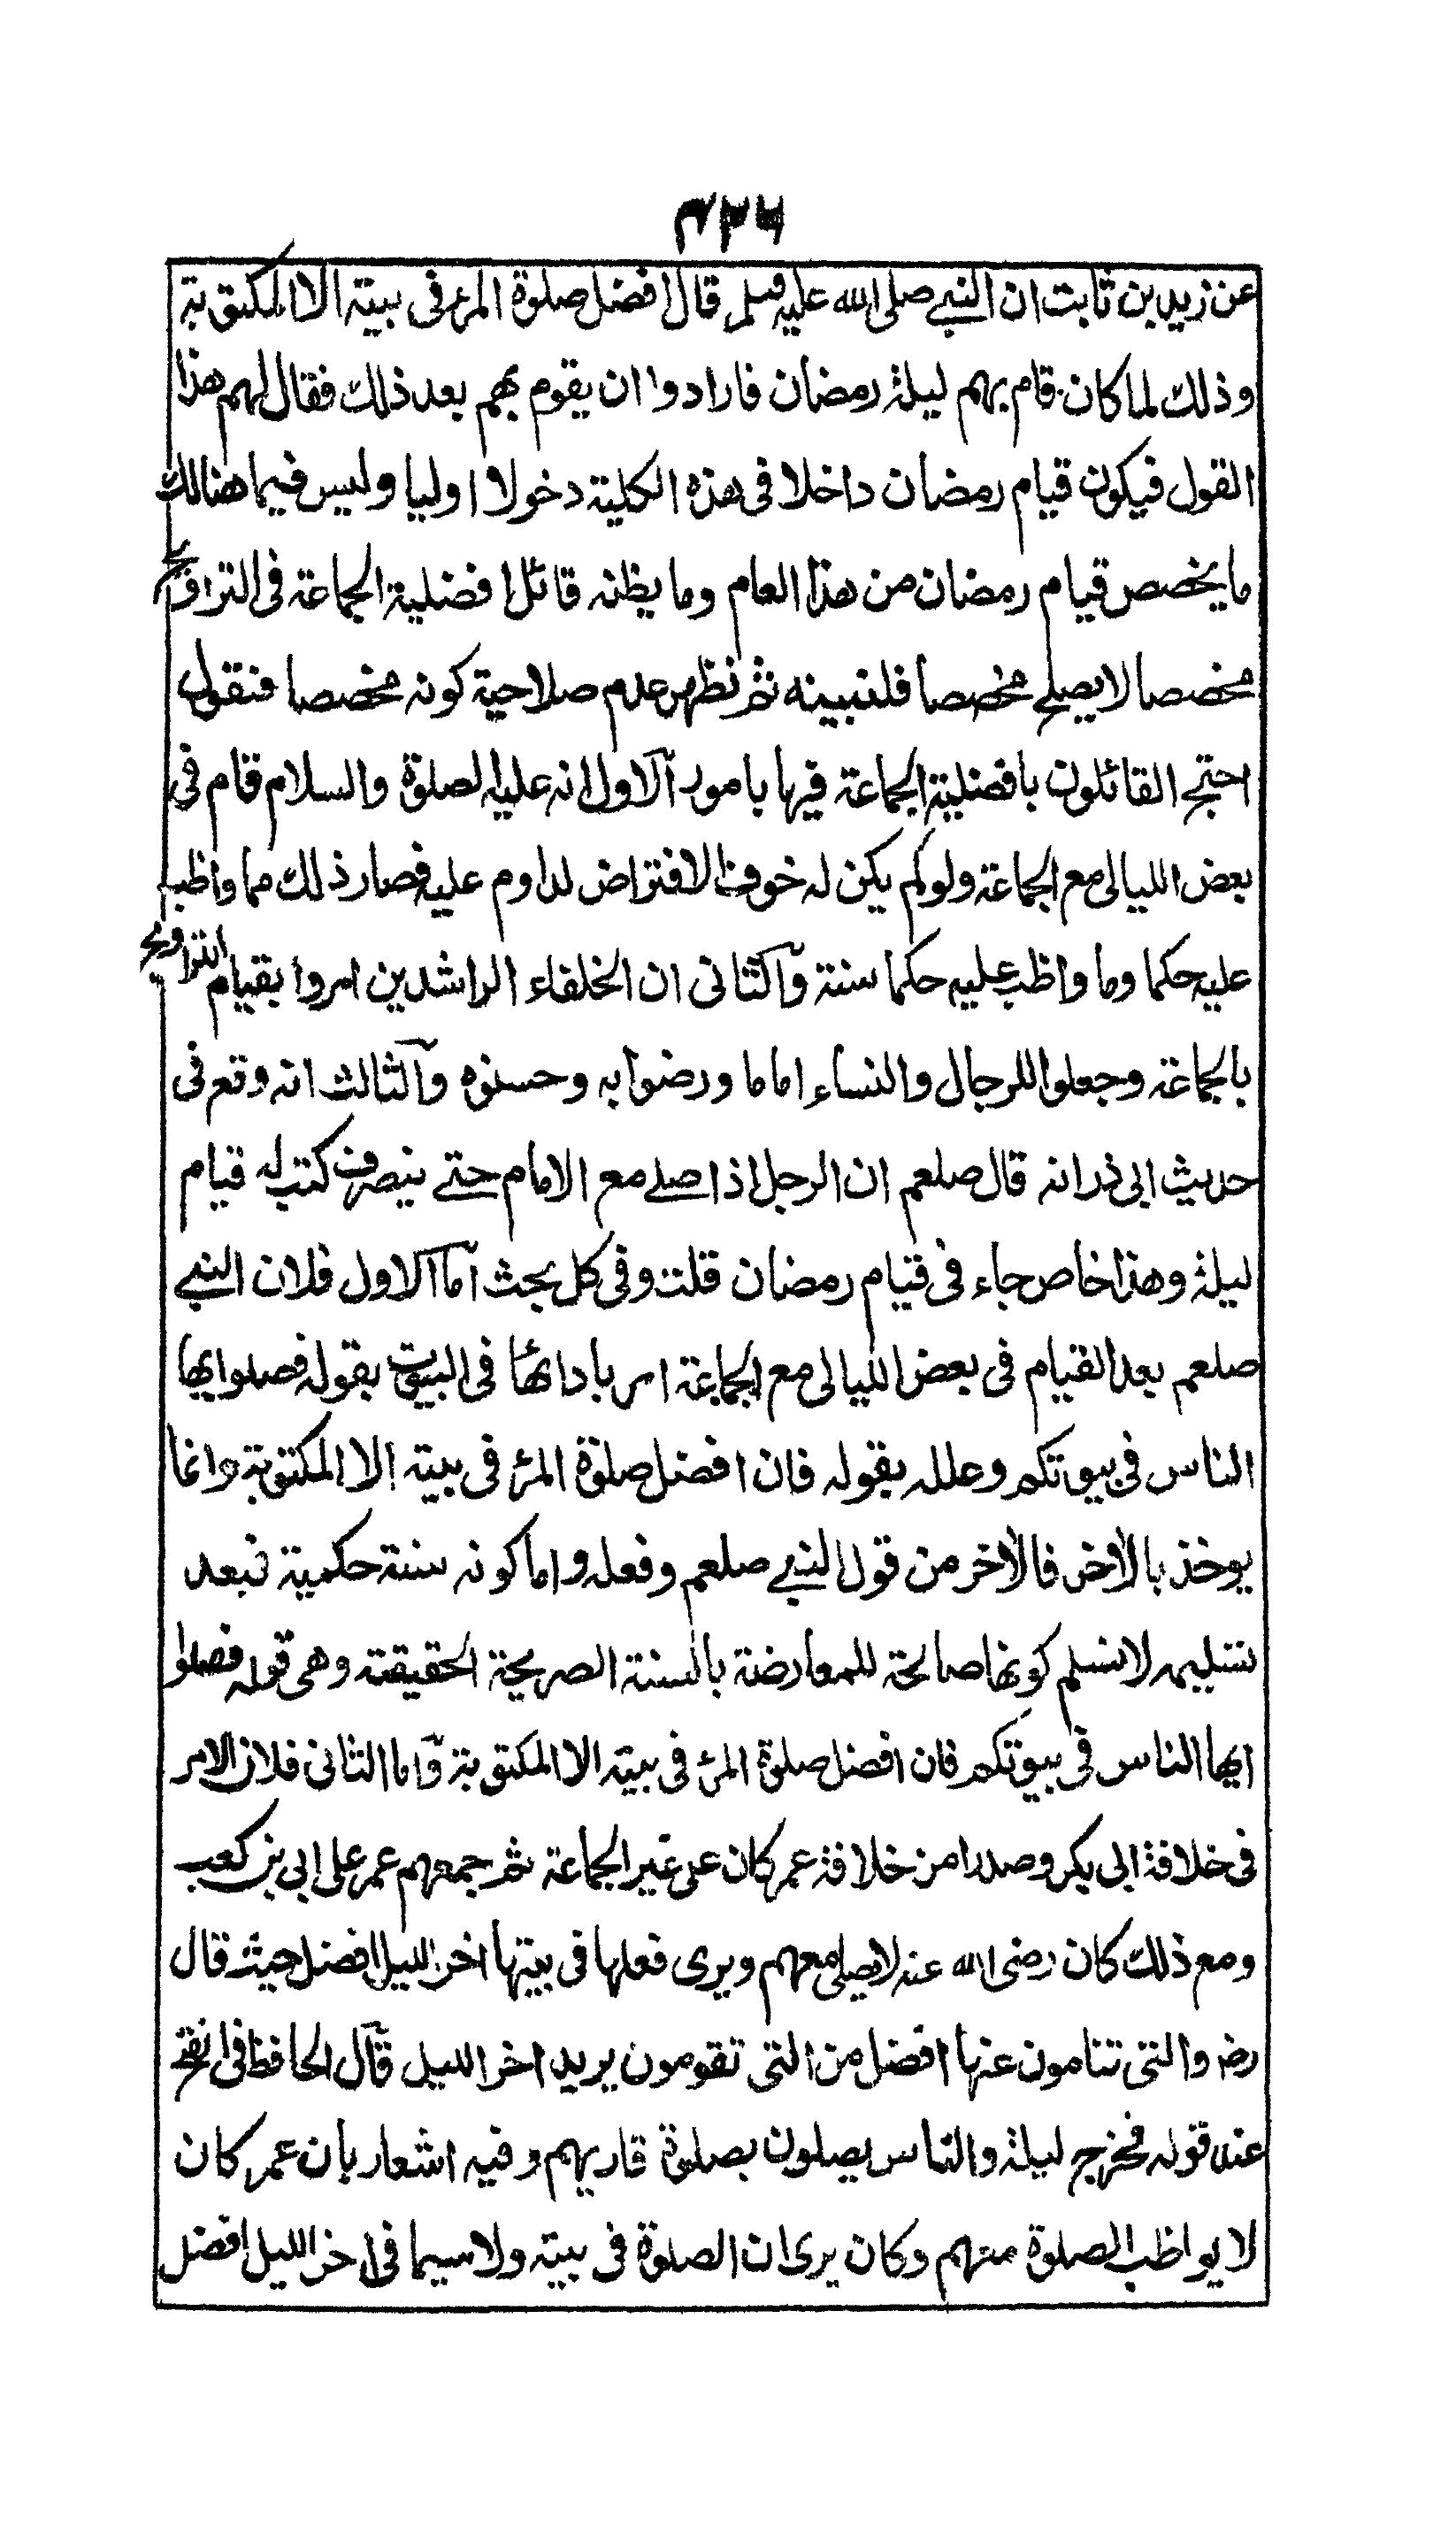 ۳۲۶
عن زيد بن ثابت ان النبے صلى الله عليه وسلم قال افضل صلوة المرء فى بيته الا المكتوبة
وذلك لما كان قام بهم ليلة رمضان فارادوا ان يقوم بهم بعد ذلك فقال لهم هذا
القول فيكون قيام رمضان داخلا فى هذه الكلية دخولا اوليا وليس فيما هنالك
ما يخصص قيام رمضان من هذا العام وما يظنه قائل افضلية الجماعة فى التراويح
مخصصا لا يصلح مخصصا فلنبينه ثم نظهر عدم صلاحية كونه مخصصا فنقول
احتج القائلون بافضلية الجماعة فيها بامور الاول انه عليه الصلوة والسلام قام فى
بعض الليالى مع الجماعة ولو لم يكن له خوف الافتراض لداوم عليه فصار ذلك مما واظب
عليه حكما وما واظب عليه حكما سنة والثانى ان الخلفاء الراشدين امروا بقيام التراويح
بالجماعة وجعلوا للرجال والنساء اماما ورضوا به وحسنوه والثالث انه وقع فى
حديث ابى ذر انه قال صلعم ان الرجل اذا صلے مع الامام حتے ينصرف كتب له قيام
ليلة وهذا خاص جاء فى قيام رمضان قلت وفى كل بحث اما الاول فلان النبے
صلعم بعد القيام فى بعض الليالى مع الجماعة امر بادائها فى البيوت بقوله فصلوا ايها
الناس فى بيوتكم وعلله بقوله فان افضل صلوة المرء فى بيته الا المكتوبة وانما
يوخذ بالآخر فالآخر من قول النبے صلعم وفعله واما كونه سنة حكمية فبعد
تسليمه لا نسلم كونها صالحة للمعارضة بالسنة الصريحة الحقيقة وهى قوله فصلوا
ايها الناس فى بيوتكم فان افضل صلوة المرء فى بيته الا المكتوبة واما الثانى فلان الامر
فى خلافة ابى بكر وصدرا من خلافة عمر كان على غير الجماعة ثم جمعهم عمر على ابى بن كعب
ومع ذلك كان رضى الله عنه لا يصلى معهم ويرى فعلها فى بيتها اخر الليل افضل حيث قال
رضه والتى تنامون عنها افضل من التى تقومون يريد اخر الليل قال الحافظ فى الفتح
عند قوله فخرج ليلة والناس يصلون بصلوة قاريهم وفيه اشعار بان عمر كان
لا يواظب الصلوة معهم وكان يرى ان الصلوة فى بيته ولا سيما فى اخر الليل افضل